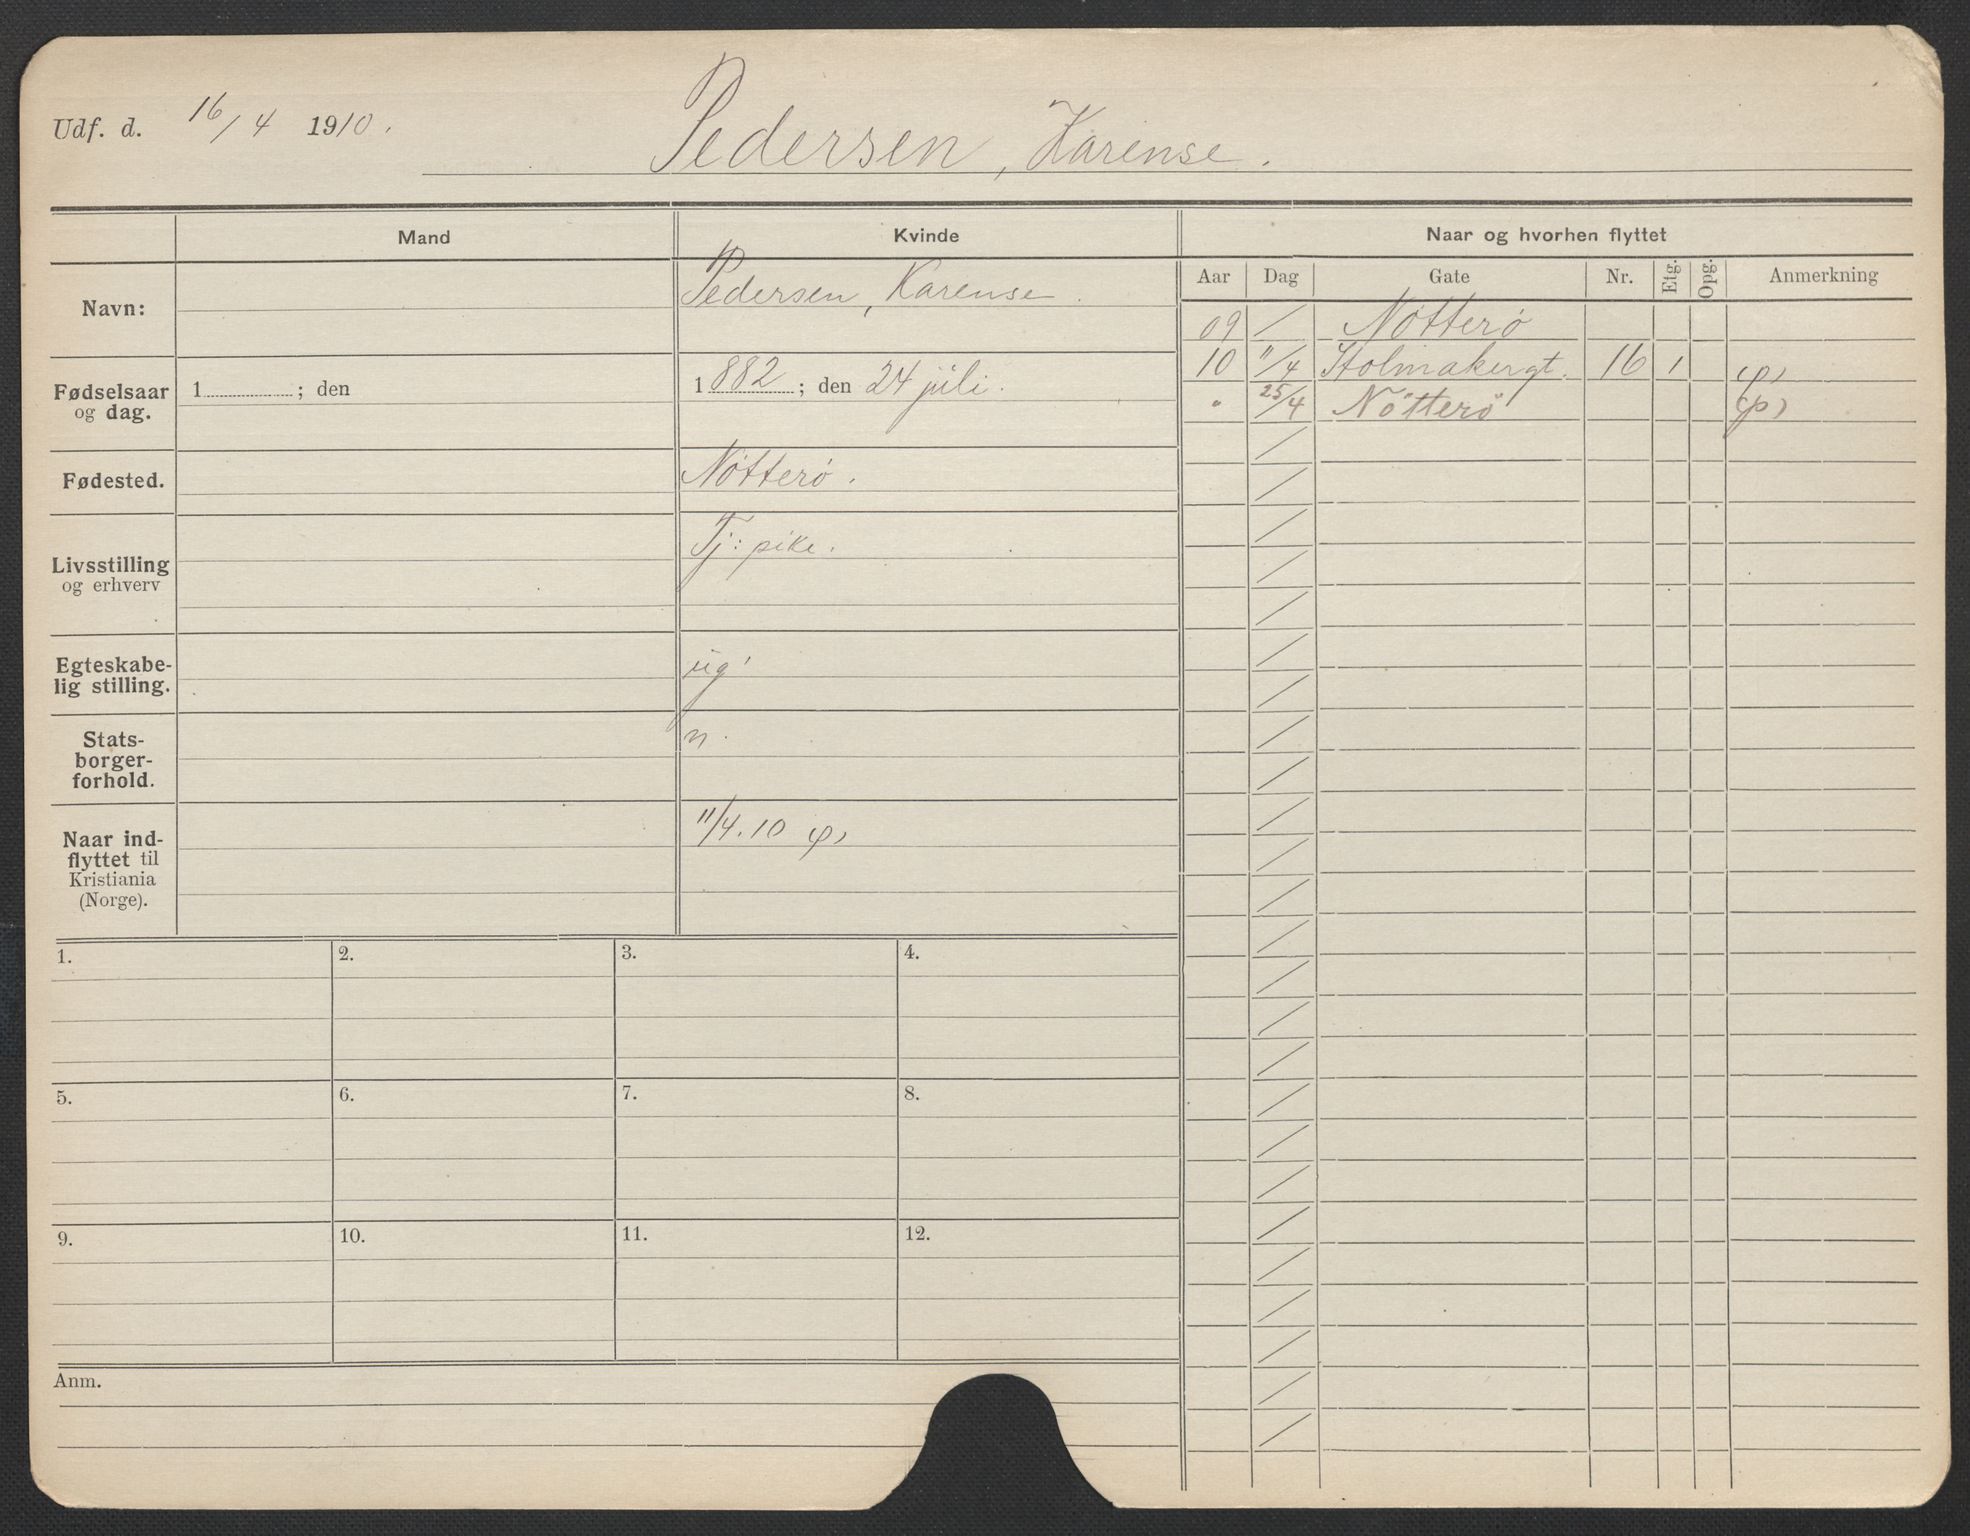 Udf. d. 16/4 1910.
Pedersen, Karense.
Mand
Kvinde
Naar og hvorhen flyttet
Aar Dag Gate Nr. Etg. Opg. Anmerkning
Navn:
Pedersen, Karense.
Fødselsaar
og dag.
1 ; den
1882; den 24 juli.
Fødested.
Nötterö.
Livsstilling
og erhverv
Tj: pike.
Egteskabe-
lig stilling.
ug'
Stats-
borger-
forhold.
n.
Naar ind-
flyttet til
Kristiania
(Norge).
11/4.10 (p)
09 / Nötterö
10 11/4 Holmakergt. 16 1 (p)
" 25/4 Nötterö (p)
1. 2. 3. 4.
5. 6. 7. 8.
9. 10. 11. 12.
Anm.